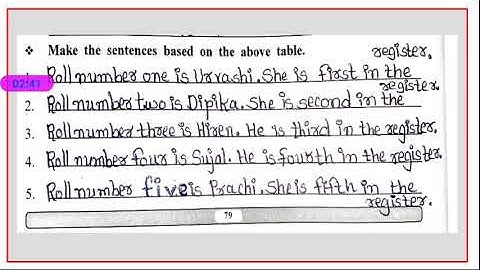 ❖ Make the sentences based on the above table.
register.
1. Roll number one is Urvashi. She is first in the
02:41
register.
2. Roll number two is Dipika. She is second in the
3. Roll number three is Hiren. He is third in the register.
4. Roll number four is Sujal. He is fourth in the register.
5. Roll number five is Prachi. She is fifth in the
register.
79